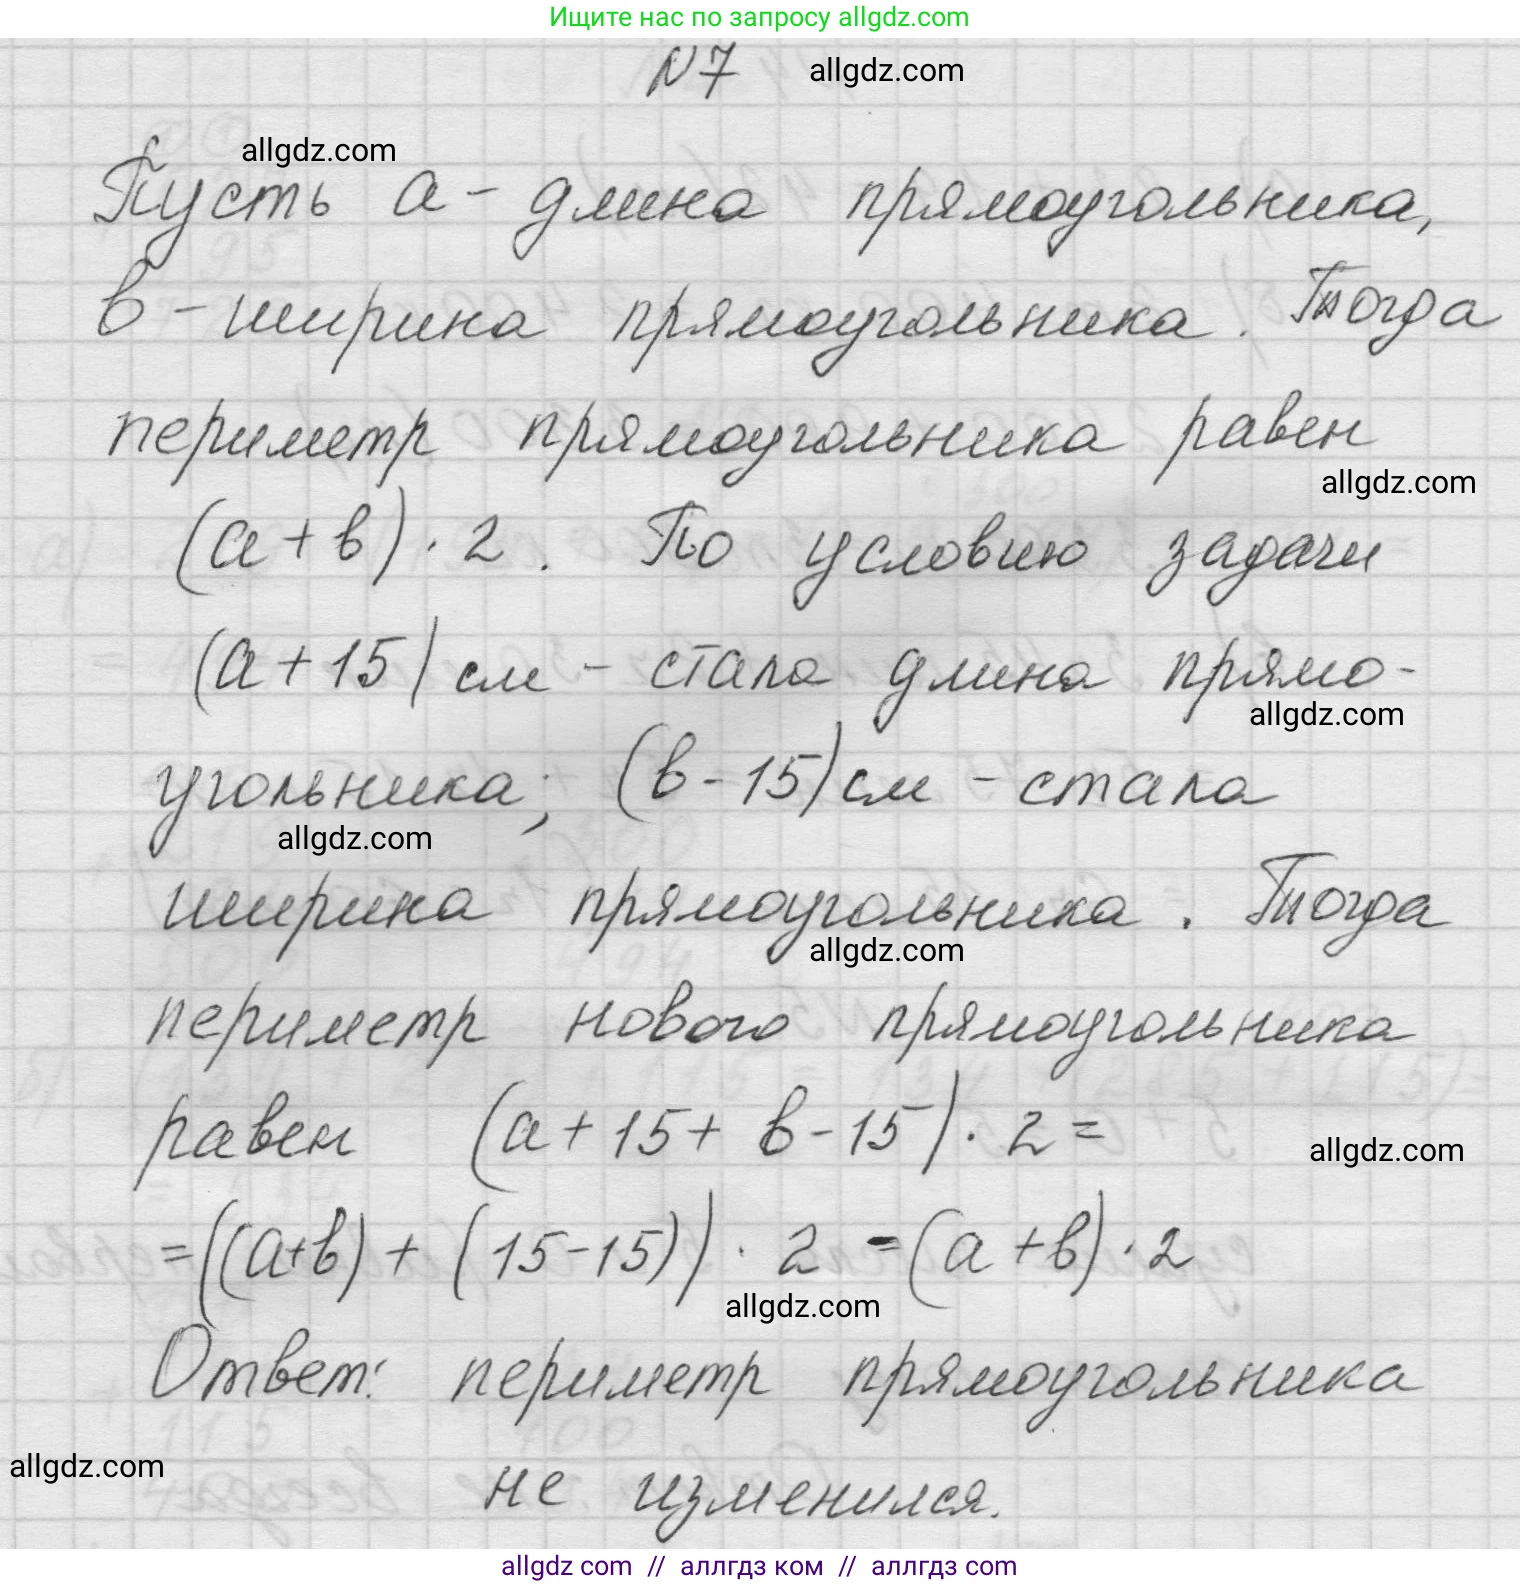 Ищите нас по запросу allgdz.com
№7 allgdz.com
allgdz.com
Пусть а - длина прямоугольника,
в - ширина прямоугольника. Тогда
периметр прямоугольника равен
allgdz.com
(а + в) · 2. По условию задачи
(а + 15) см - стала длина прямо-
allgdz.com
угольника; (в - 15) см - стала
allgdz.com
ширина прямоугольника. Тогда
allgdz.com
периметр нового прямоугольника
равен (а + 15 + в - 15) · 2 =
allgdz.com
= ((а+в) + (15 - 15)) · 2 = (а + в) · 2
allgdz.com
Ответ: периметр прямоугольника
allgdz.com
не изменился.
allgdz com // аллгдз ком // аллгдз com